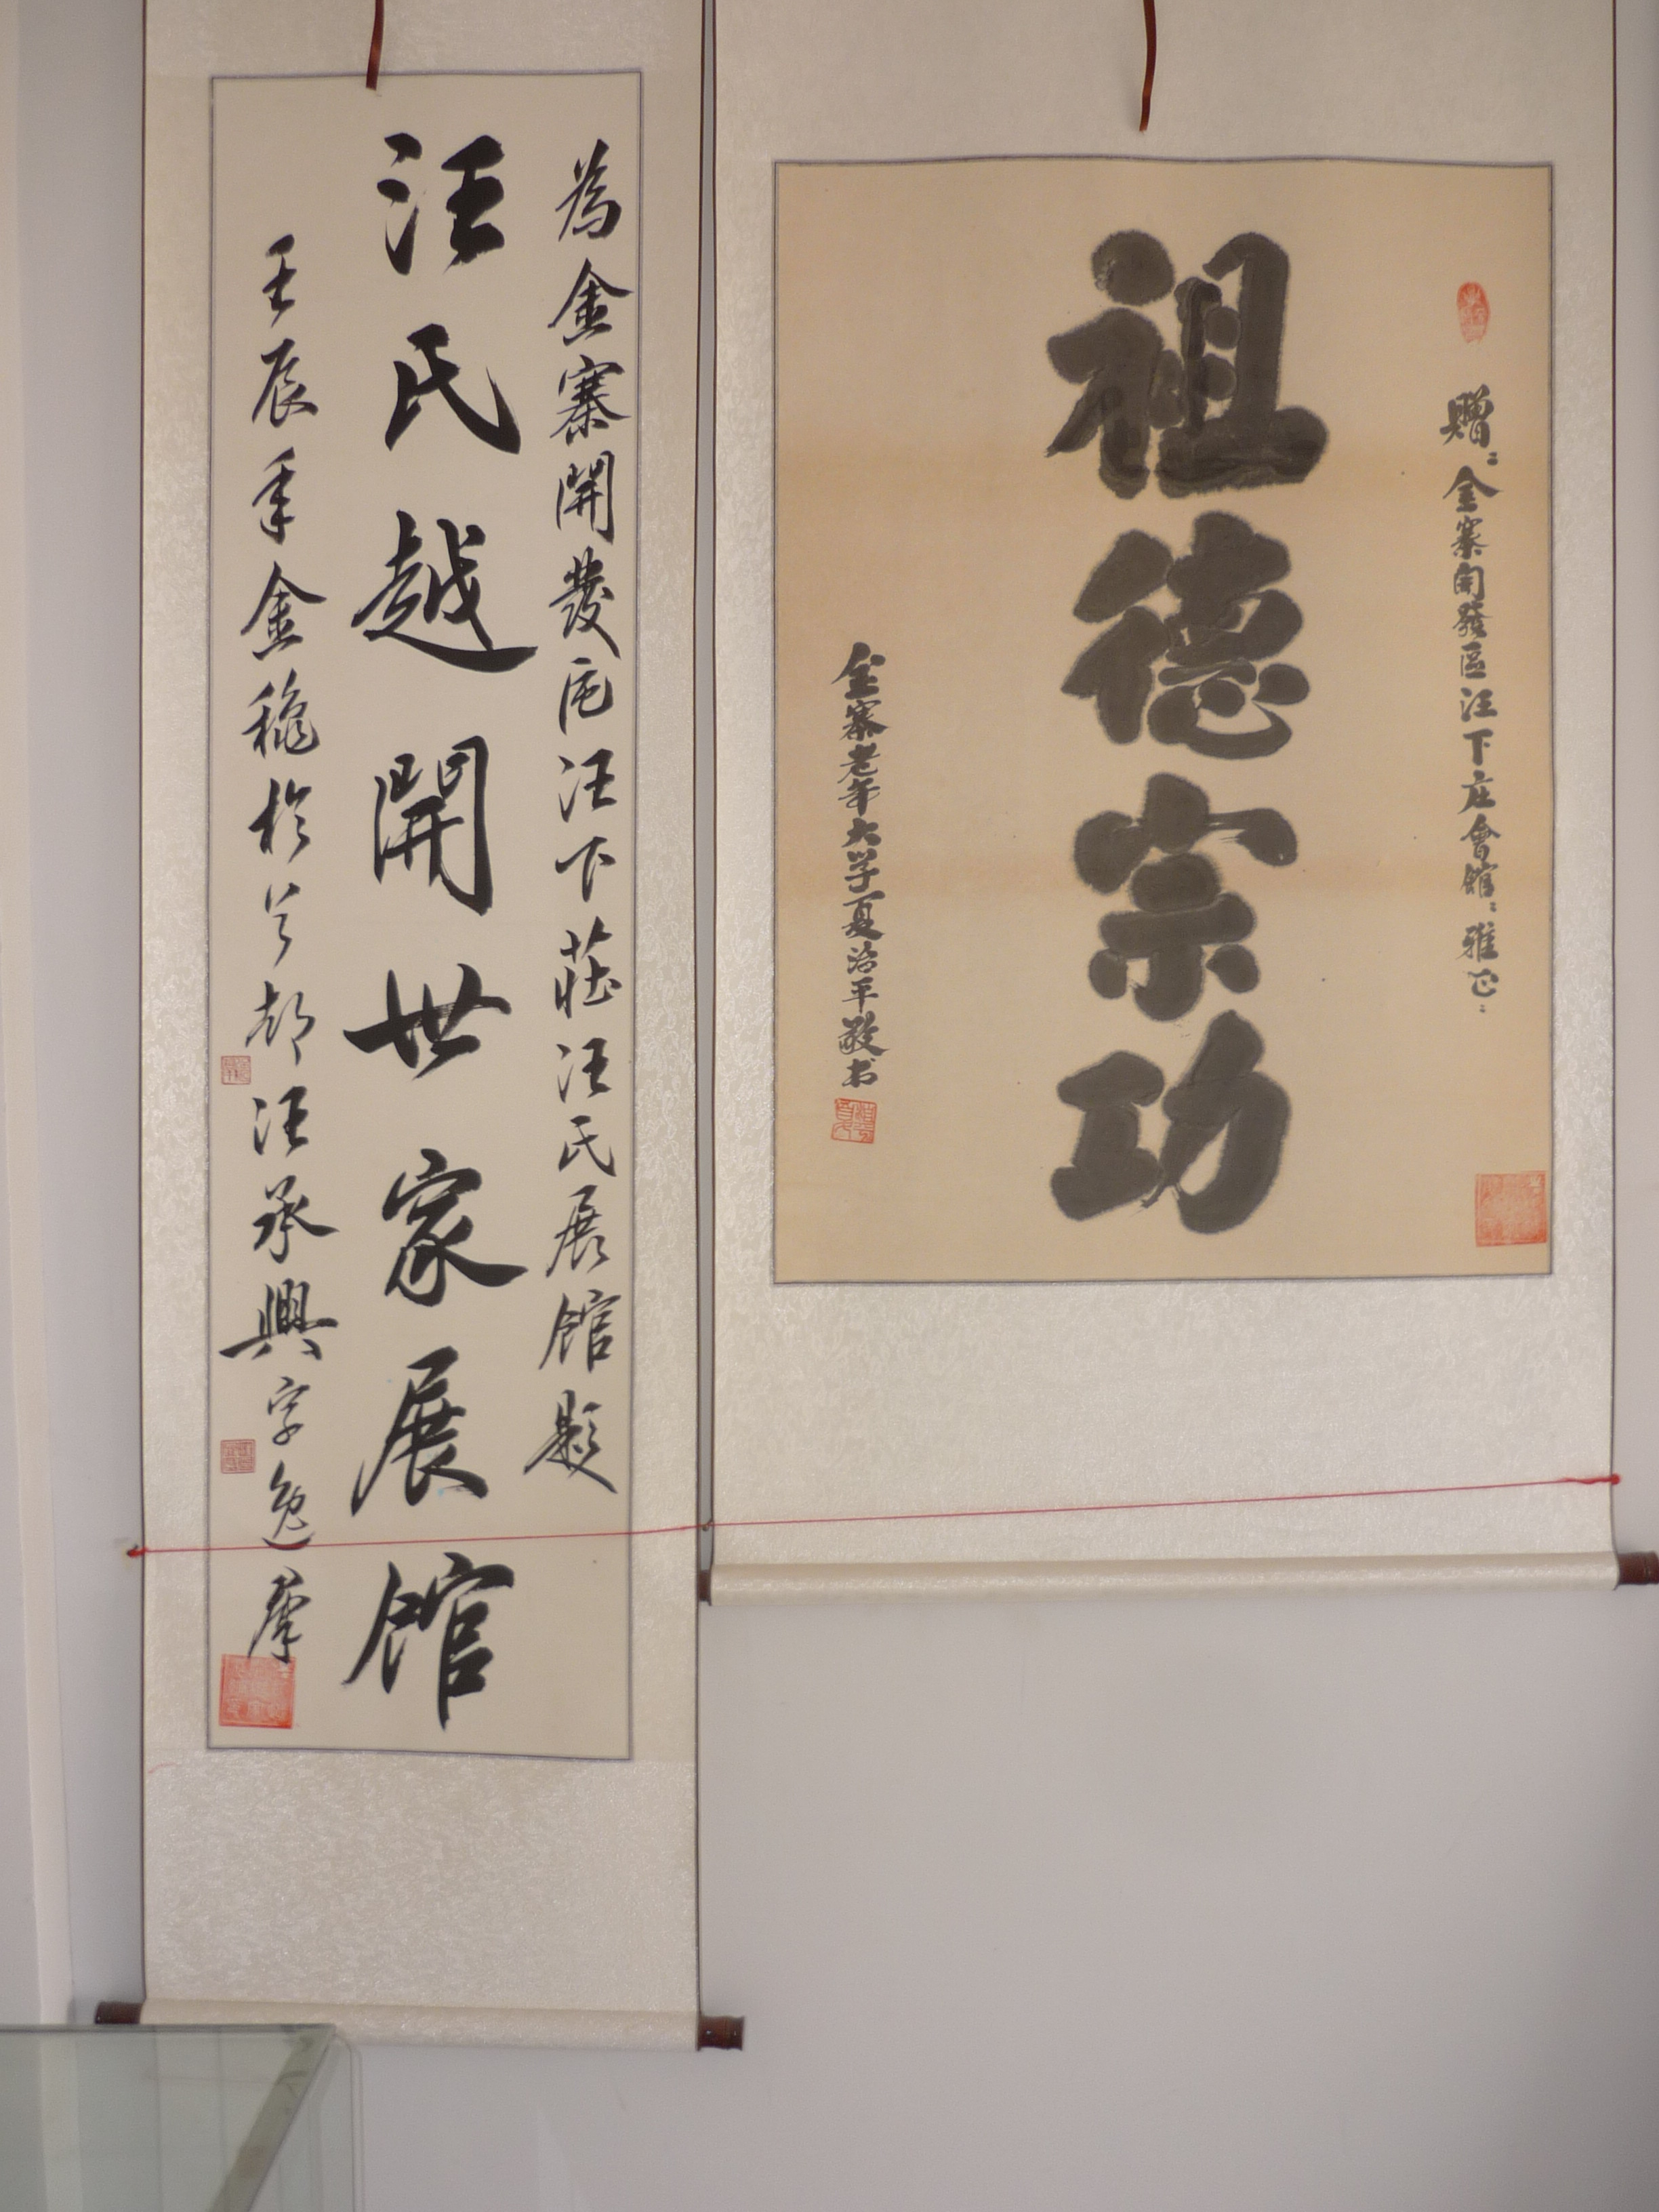 贈：金寨開發區汪下庄會館：雅正：
祖德宗功
金寨老年大学夏治平敬书
為金寨開發區汪下莊汪氏展館題
汪氏越開世家展館
壬辰年金穐於首都汪承興字逸群